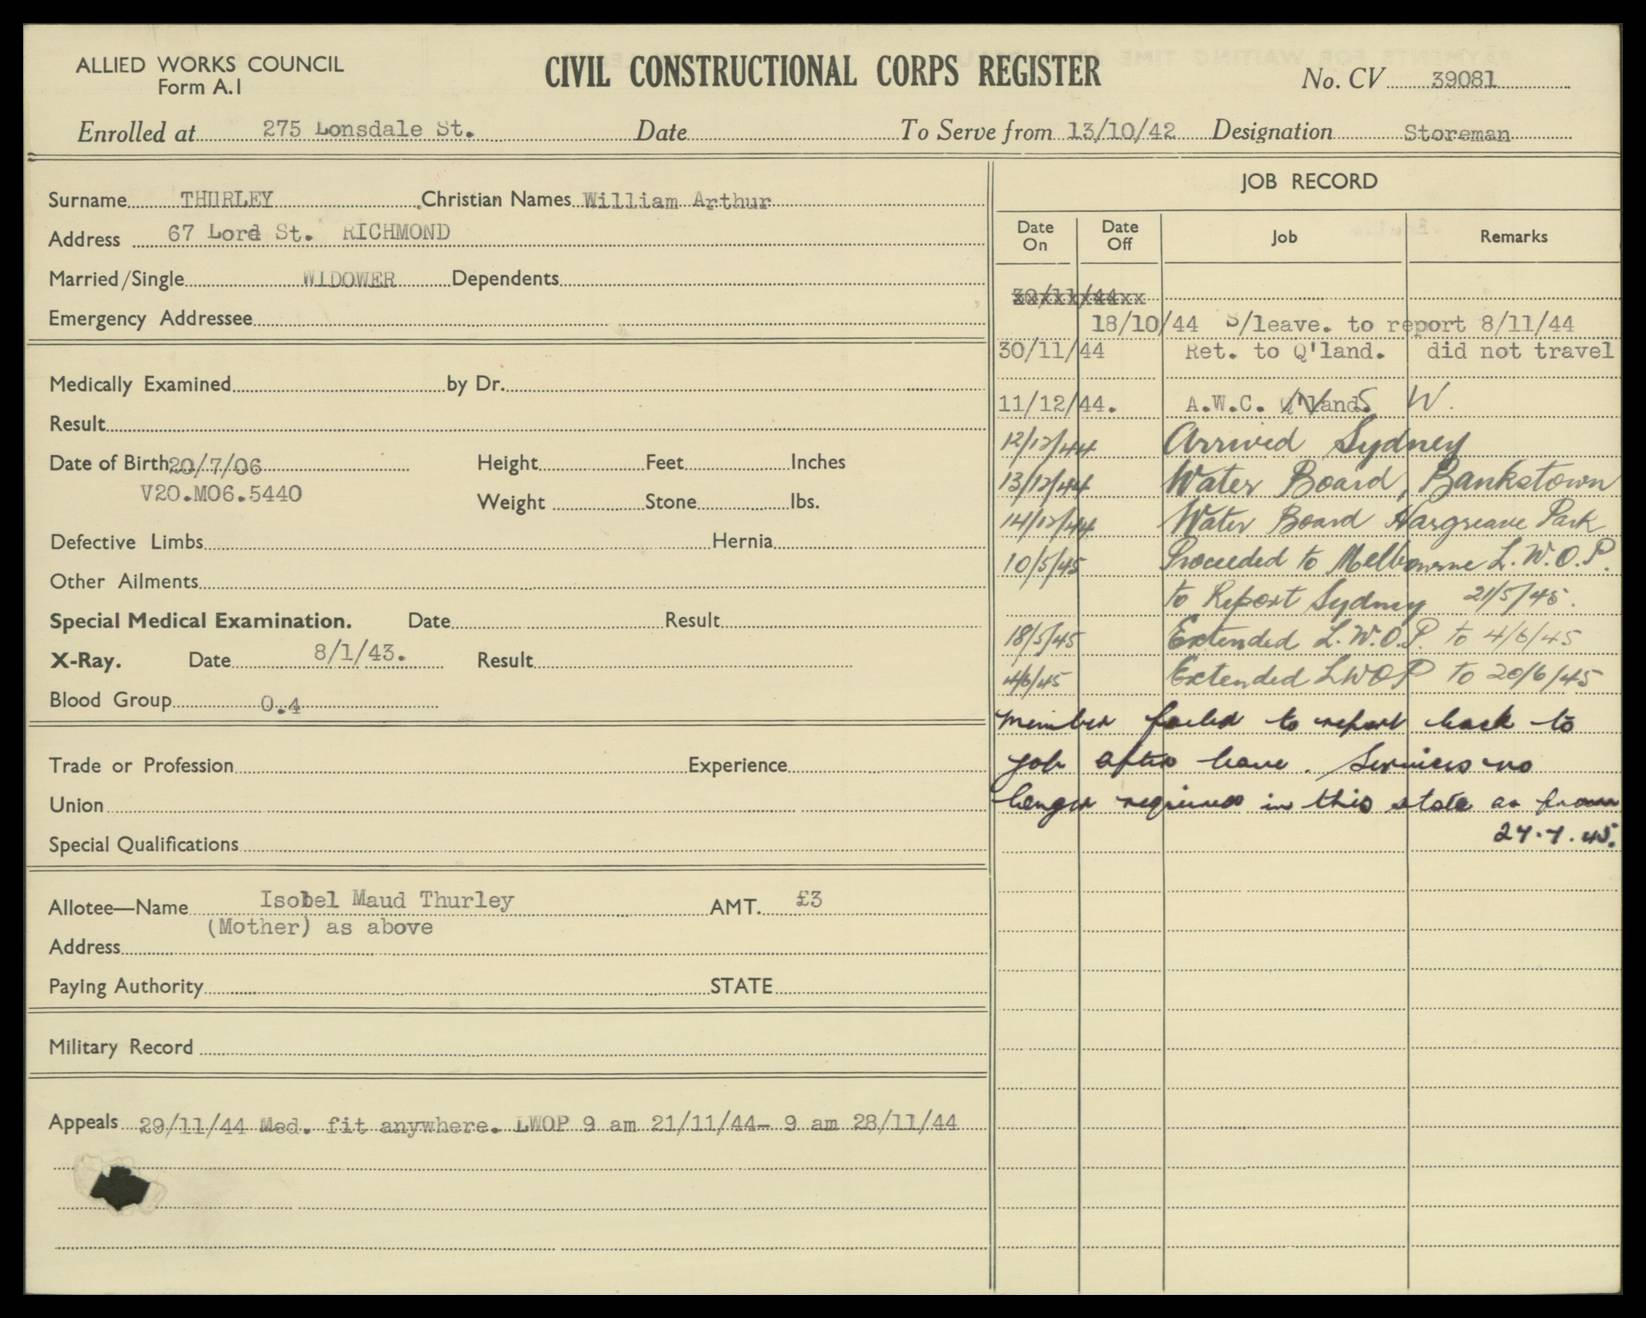 ALLIED WORKS COUNCIL
Form A.1
CIVIL CONSTRUCTIONAL CORPS REGISTER
No. CV 39081
Enrolled at 275 Lonsdale St. Date To Serve from 13/10/42 Designation Storeman
Surname THURLEY Christian Names William Arthur
Address 67 Lord St. RICHMOND
Married/Single WIDOWER Dependents
Emergency Addressee
Medically Examined by Dr.
Result
Date of Birth 20/7/06 Height Feet Inches
V20.M06.5440
Weight Stone lbs.
Defective Limbs Hernia
Other Ailments
Special Medical Examination. Date Result
X-Ray. Date 8/1/43. Result
Blood Group 0.4
Trade or Profession Experience
Union
Special Qualifications
Allotee—Name Isobel Maud Thurley AMT. £3
(Mother) as above
Address
Paying Authority STATE
Military Record
Appeals 29/11/44 Med. fit anywhere. LWOP 9 am 21/11/44- 9 am 28/11/44
JOB RECORD
Date On Date Off Job Remarks
30/11/44
18/10/44 S/leave. to report 8/11/44
30/11/44 Ret. to Q'land. did not travel
11/12/44. A.W.C. Q'land. N S W.
12/12/44 Arrived Sydney
13/12/44 Water Board, Bankstown
14/12/44 Water Board Hargreave Park
10/5/45 Proceeded to Melbourne L.W.O.P.
to Report Sydney 21/5/45.
18/5/45 Extended L.W.O.P. to 4/6/45
4/6/45 Extended LWOP to 20/6/45
Member failed to report back to
job after leave. Services no
longer required in this state as from
27.7.45.